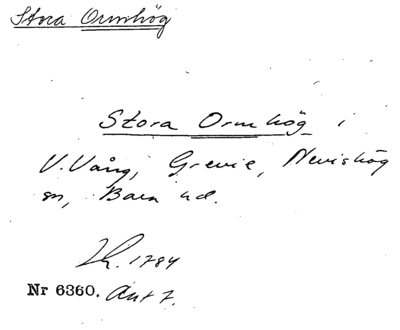 Stora Ormhög
Stora Ormhög i
V. Vång, Grevie, Nevishög
sn, Bara hd.
Lh. 1784
Nr 6360. Ant 7.